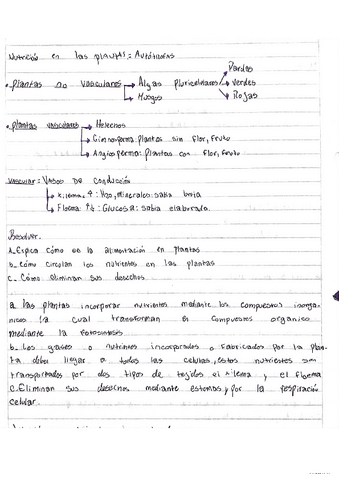 Nutrición en las plantas = Autótrofas
Pardas
• Plantas no vasculares → Algas pluricelulares → Verdes
Musgos Rojas
• Plantas vasculares → Helechos
→ Gimnosperma: plantas sin flor, fruto
→ Angiosperma: plantas con flor, fruto
Vascular: Vasos de conducción
→ Xilema: ↑: H2O, minerales: salvia bruta
→ Floema: ↑↓: Glucosa: salvia elaborada.
Resolver.
A. Explica cómo es la alimentación en plantas
b. cómo circulan los nutrientes en las plantas
c. Cómo eliminan sus desechos
a. las plantas incorporar nutrientes mediante los compuestos inorga-
nicos la cual transforman en compuestos organico
mediante la fotosintesis
b. Los gases o nutrientes incorporados o fabricados por la plan-
ta debe llegar a todas las celulas, estos nutrientes son
transportados por dos tipos de tejidos el xilema y el floema
C. Eliminan sus desechos mediante estomas y por la respiración
celular.